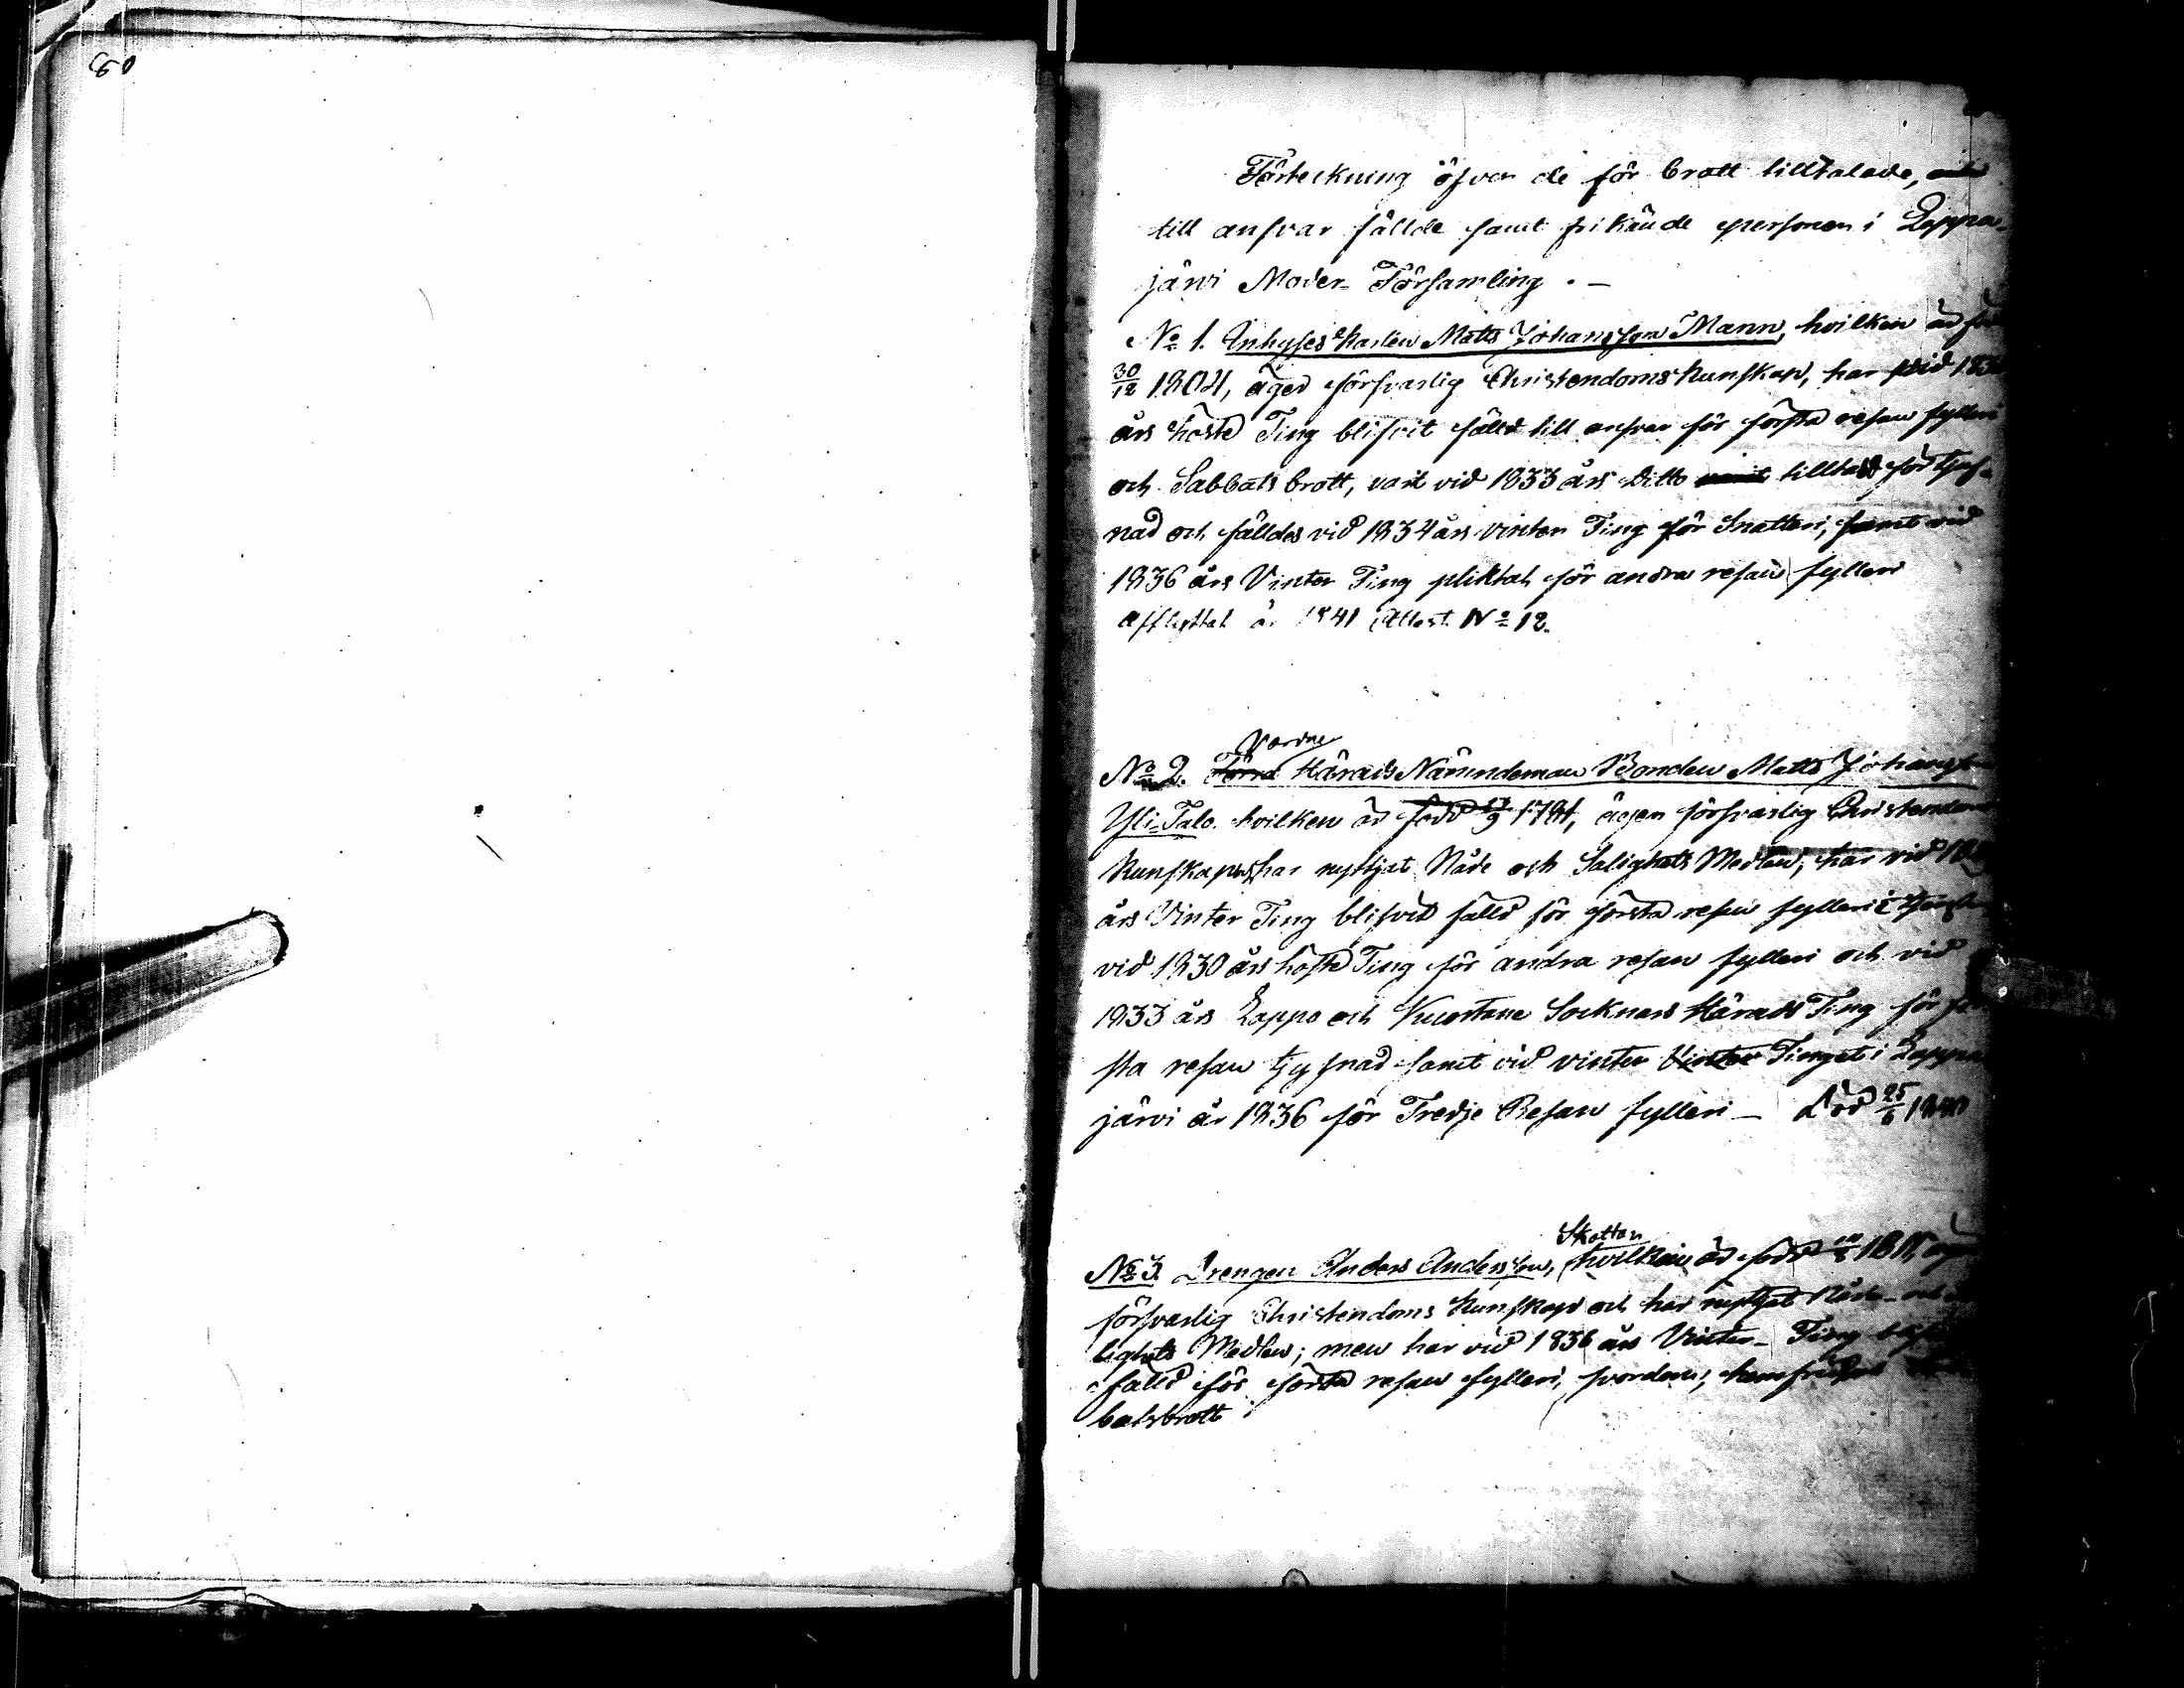 60
Förteckning öfver de för brott tilltalade,
till ansvar fällde samt frikände personer i Lappa-
järvi Moder-Församling. —
No 1. Inhyses Karlen Matts Johansson Mann, hvilken är
30/12 1804, äger försvarlig Christendoms Kunskap, har vid
års höste Ting blifvit fälld till ansvar för första resan fylleri
och Sabbats brott, varit vid 1833 års Ditto tilltald för tjuf-
nad och fälldes vid 1834 års vinter Ting för Snatteri, samt vid
1836 års Vinter Ting pliktat för andra resan fylleri
afflyttat år 1841 Attest No 12.
Vordne
No 2. Förra Härads Nämndeman Bonden Matts Johansson
Yli-Talo hvilken är född, ägen försvarlig Christendoms
Kunskap, har nyttjat Nåde och Salighets Medlen, har vid
års Vinter Ting blifvit fälld för första resan fylleri
vid 1830 års höste Ting för andra resan fylleri och vid
1833 års Lappo och Kuortane Socknars Härads Ting för för-
sta resan tjufnad samt vid vinter Vinter Tinget i Lappa
järvi år 1836 för Tredje Resan fylleri — Död 1840
Skottar
No 3. Drengen Anders Andersson, hvilken är född
försvarlig Christendoms Kunskap och har nyttjat Nåde-
lighets Medlen; men har vid 1836 års Vinter- Ting
fälld för första resan fylleri, svordom,
batsbrott